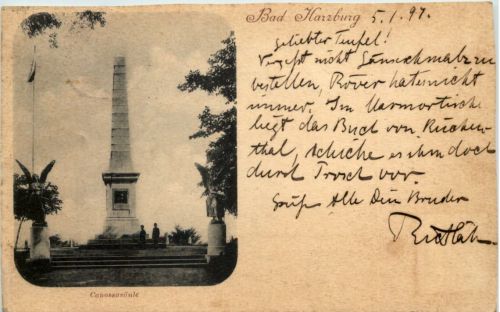 Bad Harzburg 5.1.97.
geliebter Teufel!
Vergeßt nicht Gänseschmalz zu
bestellen, Röver hat es nicht
immer. Im Marmortische
liegt das Buch von
thal, schicke es ihm doch
durch vor.
Grüß Alle Dein Bruder
Canossasäule